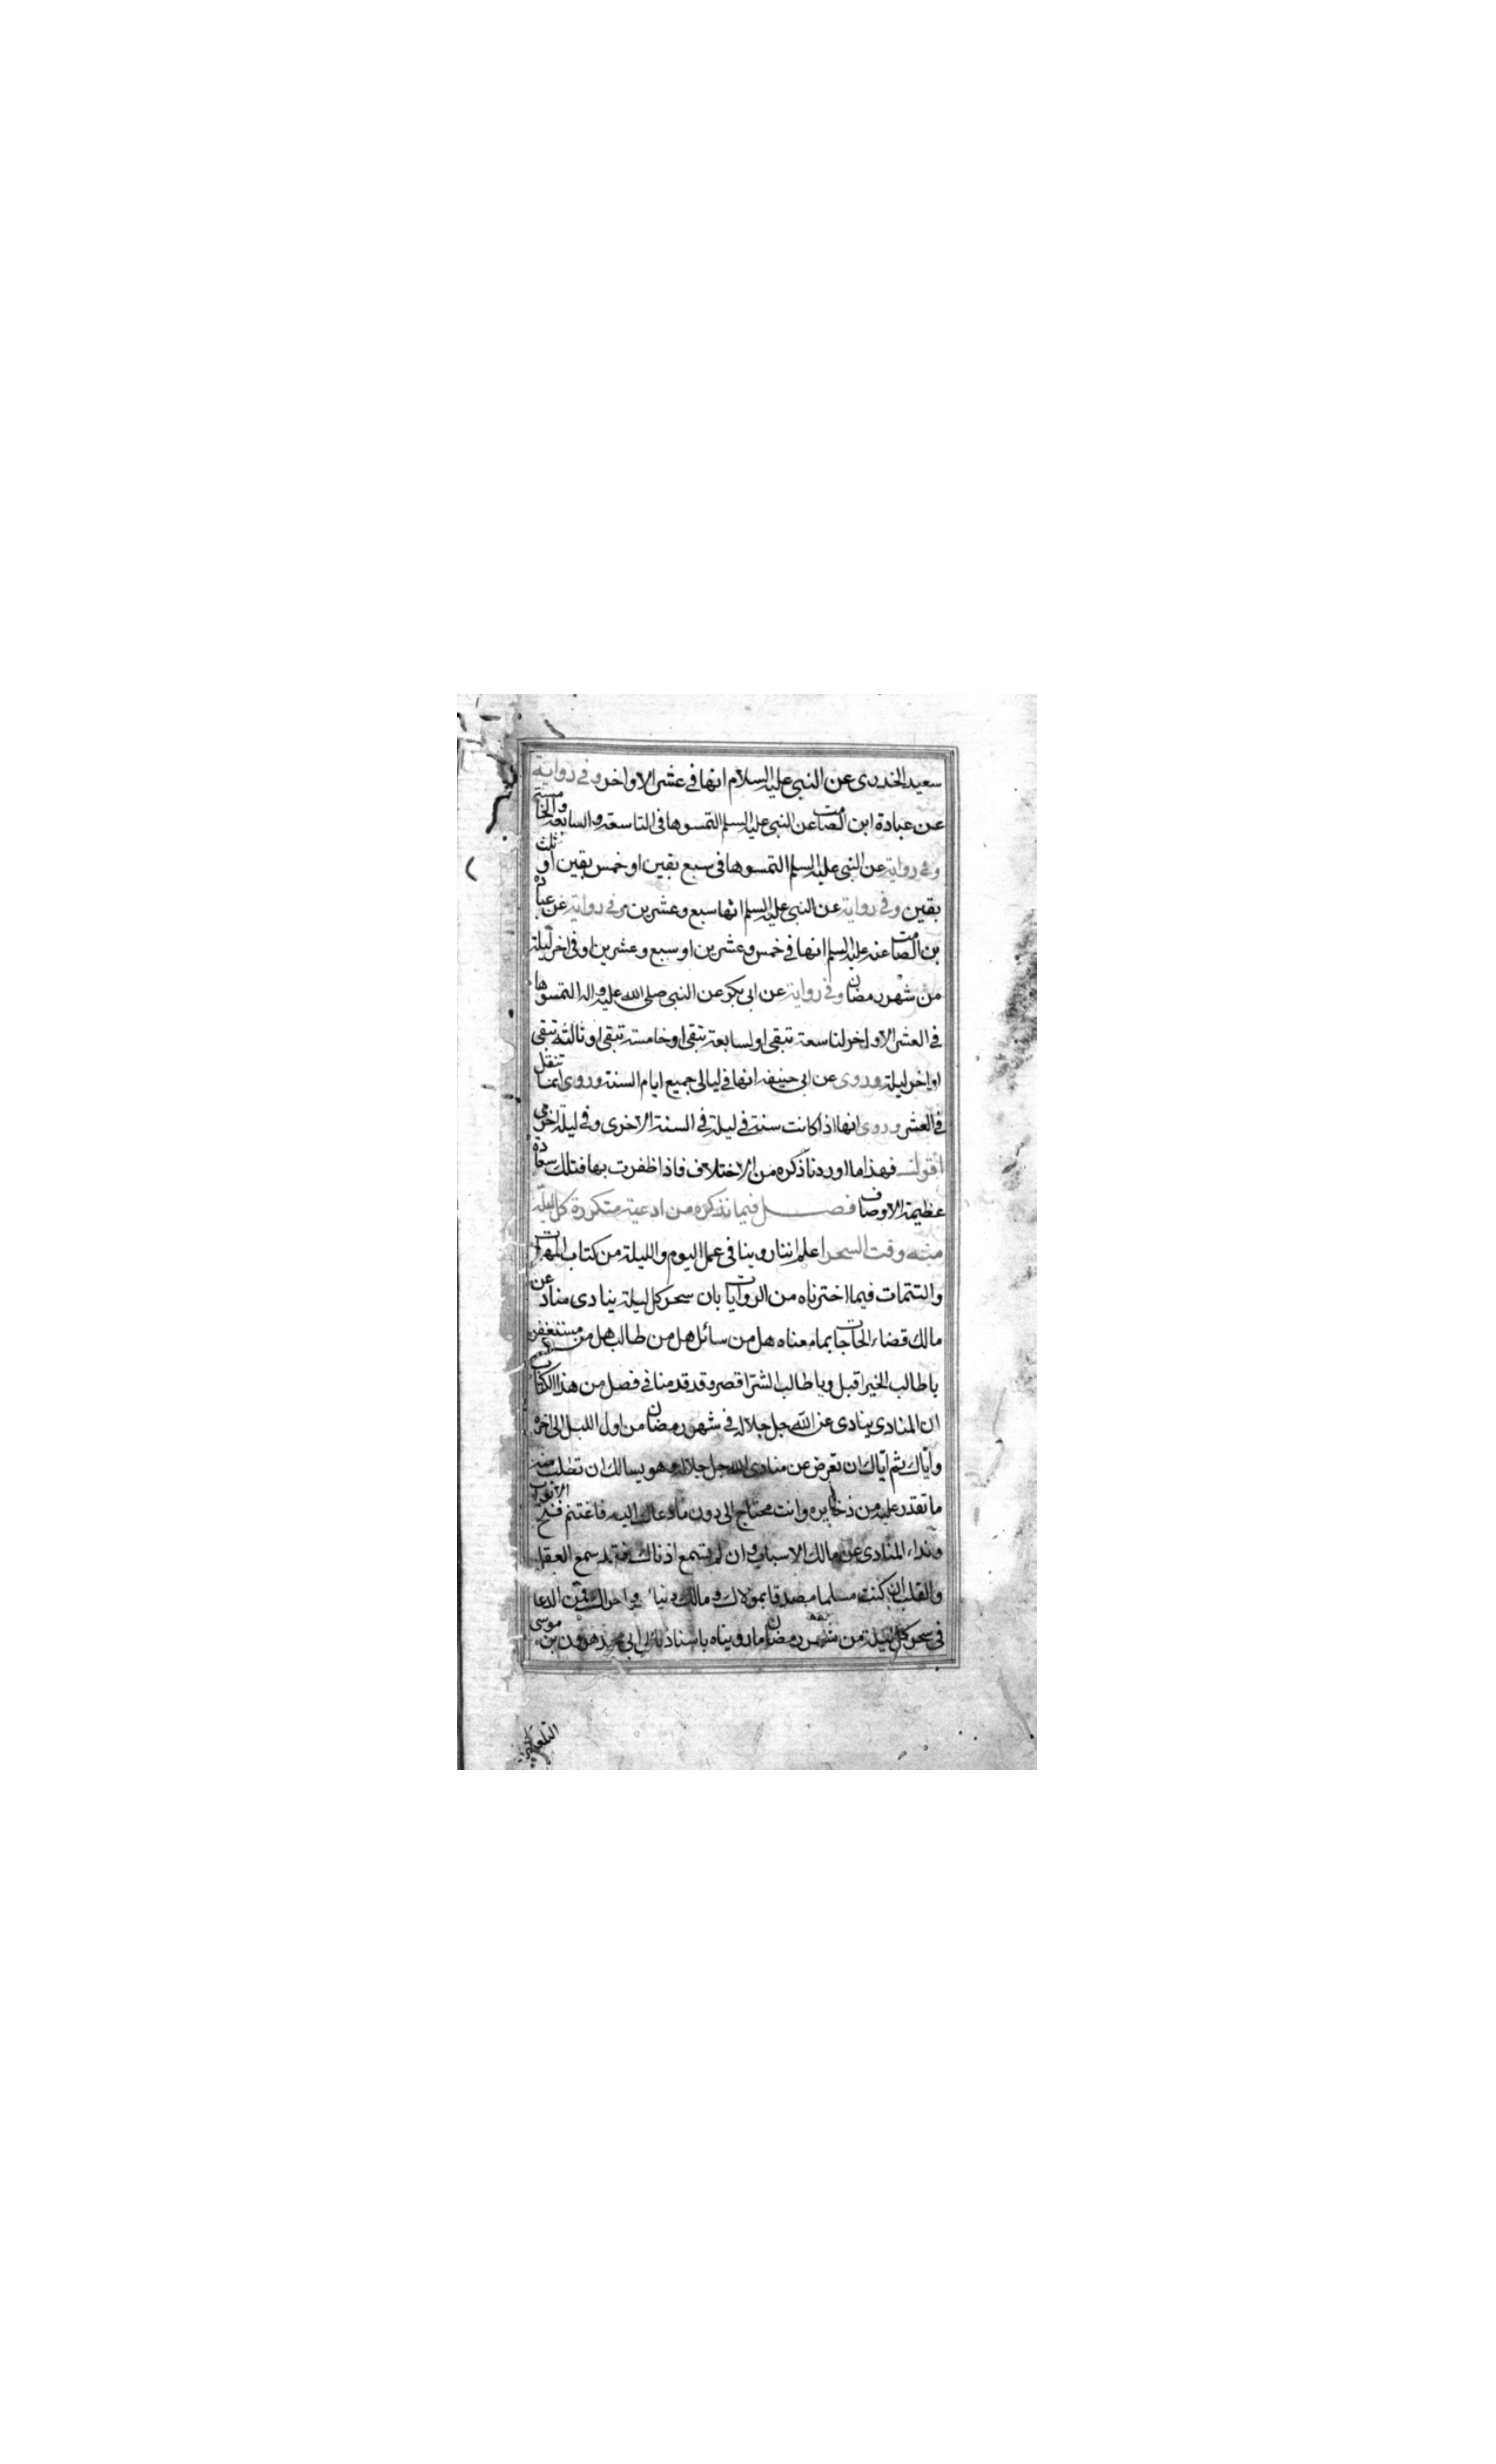 سعيد الخدرى عن النبى عليه السلام انها فى عشر الاواخر وفى رواية
عن عبادة ابن الصامت عن النبى عليه السلم التمسوها فى التاسعة والسابعة والخامسة
وفى رواية عن النبى عليه السلم التمسوها فى سبع بقين او خمس بقين او ثلث
بقين وفى رواية عن النبى عليه السلم انها سبع وعشرين وفى رواية عن عبادة
بن الصامت عنه عليه السلم انها فى خمس وعشرين او سبع وعشرين او فى اخر ليلة
من شهر رمضان وفى رواية عن ابى بكر عن النبى صلى الله عليه واله التمسوها
فى العشر الاواخر لتاسعة تبقى او لسابعة تبقى او خامسة تبقى او ثالثة تبقى
او اخر ليلة وروى عن ابى حنيفه انها فى ليالى جميع ايام السنة وروى انها تنقل
فى العشر وروى انها اذا كانت سنة فى ليلة فى السنة الاخرى وفى ليلة اخرى
اقول فهذا ما اوردنا ذكره من الاختلاف فاذا ظفرت بها فتلك سعادة
عظيمة الاوصاف فصل فيما نذكره من ادعية متكررة كل ليلة
منه وقت السحر اعلم اننا روينا فى عمل اليوم والليلة من كتاب المهمات
والتتمات فيما اخترناه من الروايات بان سحر كل ليلة ينادى مناد عن
مالك قضاء الحاجات بما معناه هل من سائل هل من طالب هل من مستغفر
يا طالب الخير اقبل ويا طالب الشر اقصر وقد قدمنا فى فصل من هذا الكتاب
ان المنادى ينادى عن الله جل جلاله فى شهر رمضان من اول الليل الى اخره
واياك ثم اياك ان تعرض عن منادى الله جل جلاله وهو يسالك ان تطلب منه
ما تقدر عليه من ذخايره وانت محتاج الى دون ما دعاك اليه فاغتنم فتح الابواب
ونداء المنادى عن مالك الاسباب وان لم تسمع اذناك فقد سمع العقل
والقلب ان كنت مسلما مصدقا بمولاك ومالك دنياك واخراك فمن الدعا
فى سحر كل ليلة من شهر رمضان ما رويناه باسنادنا الى ابى محمد هرون بن موسى
التلعكبرى